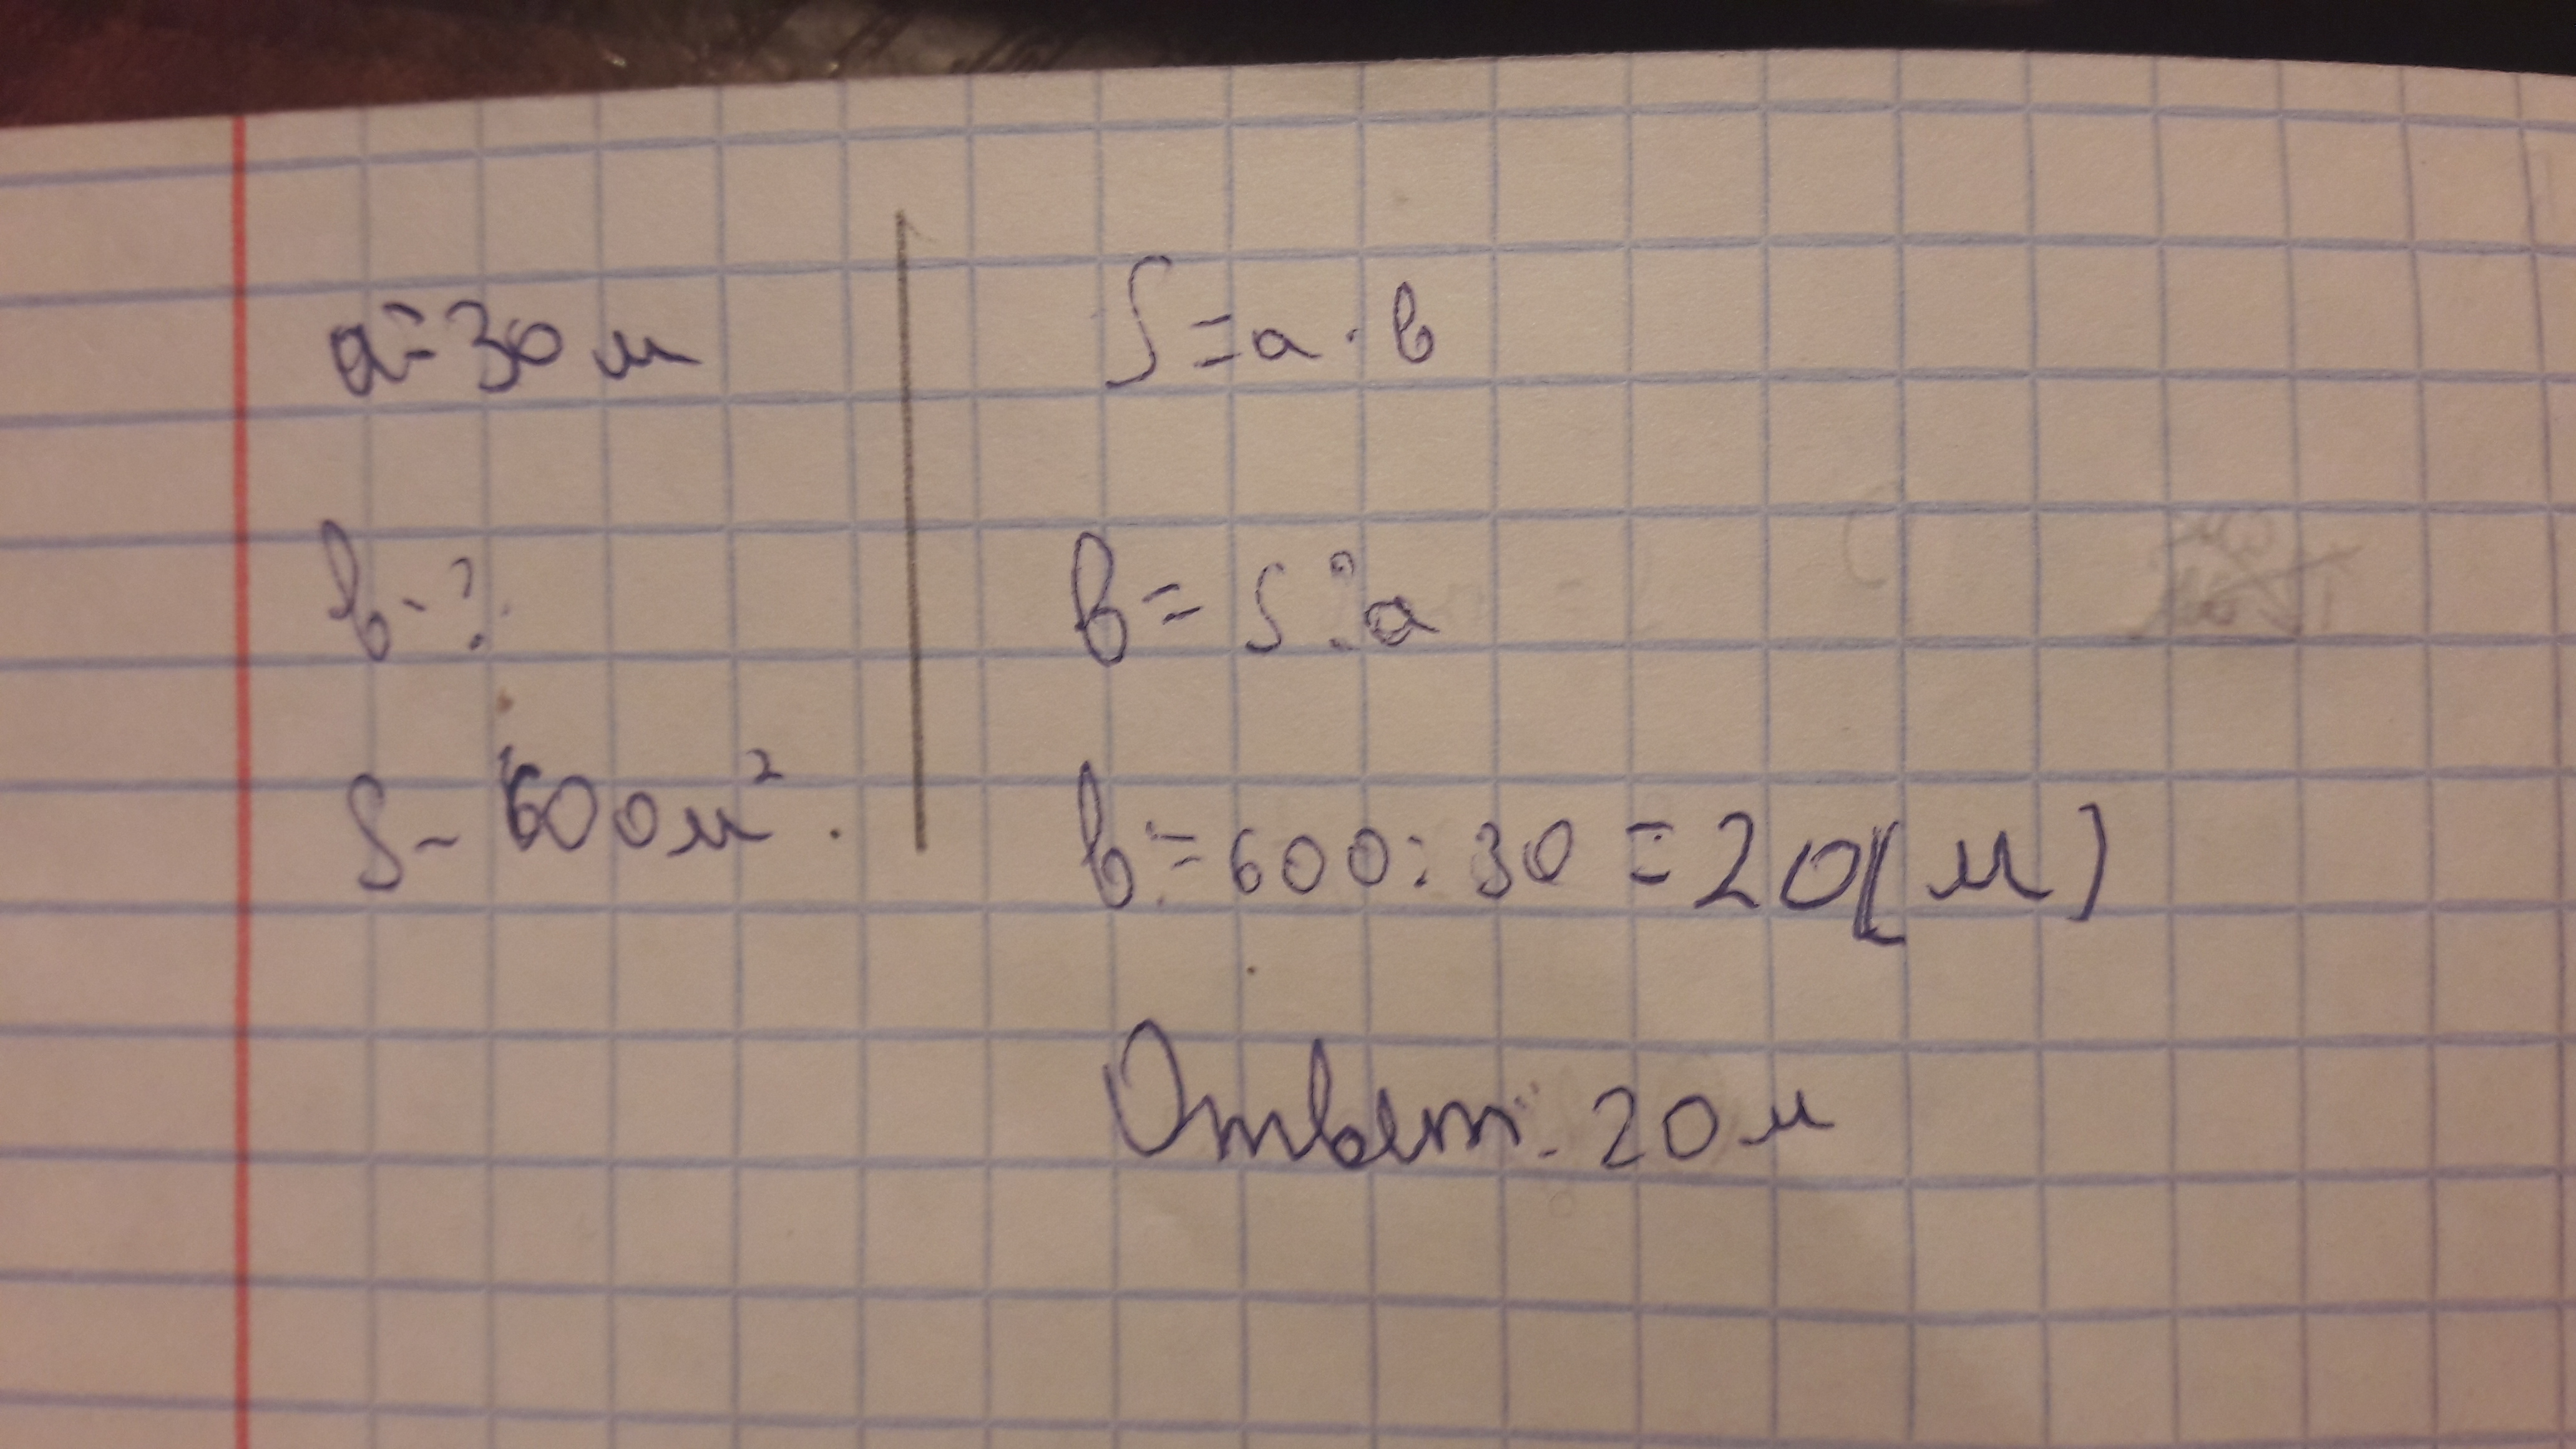 a = 30 м
b - ?
S - 600 м².
S = a · b
b = S : a
b = 600 : 30 = 20 (м)
Ответ: 20 м